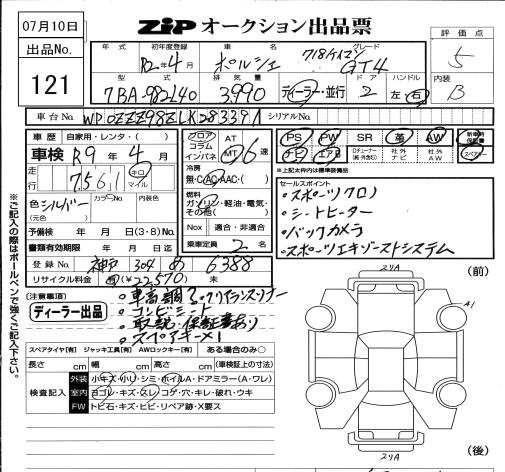 07月10日
ZIP オークション出品票
出品No.
121
評価点
5
内装
B
年式 初年度登録 車名 グレード
R2年4月 ポルシェ 718ケイマン GT4
型式 排気量 ドア ハンドル
7BA-982L40 3,990 ディーラー・並行 2 左・右
車台No. WP0ZZZ98ZLK283391 シリアルNo.
車歴 自家用・レンタ・( )
車検 R9年4月
走行 75611 キロ マイル
色 シルバー カラーNo. 内装色
(元色)
予備検 年 月 日(3・8)No.
書類有効期限 年 月 日迄
登録No. 神戸 304 め 6388
リサイクル料金 済(¥22,570) 未
フロア コラム インパネ AT MT 6速
冷房
無・C・AC・AAC・( )
燃料
ガソリン・軽油・電気・その他( )
Nox 適合・非適合
乗車定員 2名
PS PW SR 革 AW 新車時保証書
ナビ エアB Dチューナー(純・外含む) 社外ナビ 社外AW スペアキー
※上記太枠内は標準装備品
セールスポイント
・スポーツクロノ
・シートヒーター
・バックカメラ
・スポーツエキゾーストシステム
(注意事項)
ディーラー出品
・コンビシート
・取説・保証書あり
・スペアキー×1
スペアタイヤ[有] ジャッキ工具[有] AWロックキー[有] ある場合のみ○
長さ cm 幅 cm 高さ cm (車検証上の寸法)
検査記入
外装 小キズ・小U・シミ・ホイルA・ドアミラー(A・ワレ)
室内 ヨゴレ・キズ・スレ・コゲ・穴・キレ・破れ・ウキ
FW トビ石・キズ・ヒビ・リペア跡・X要ス
※ご記入の際はボールペンで強くご記入下さい。
(前)
A1
(後)